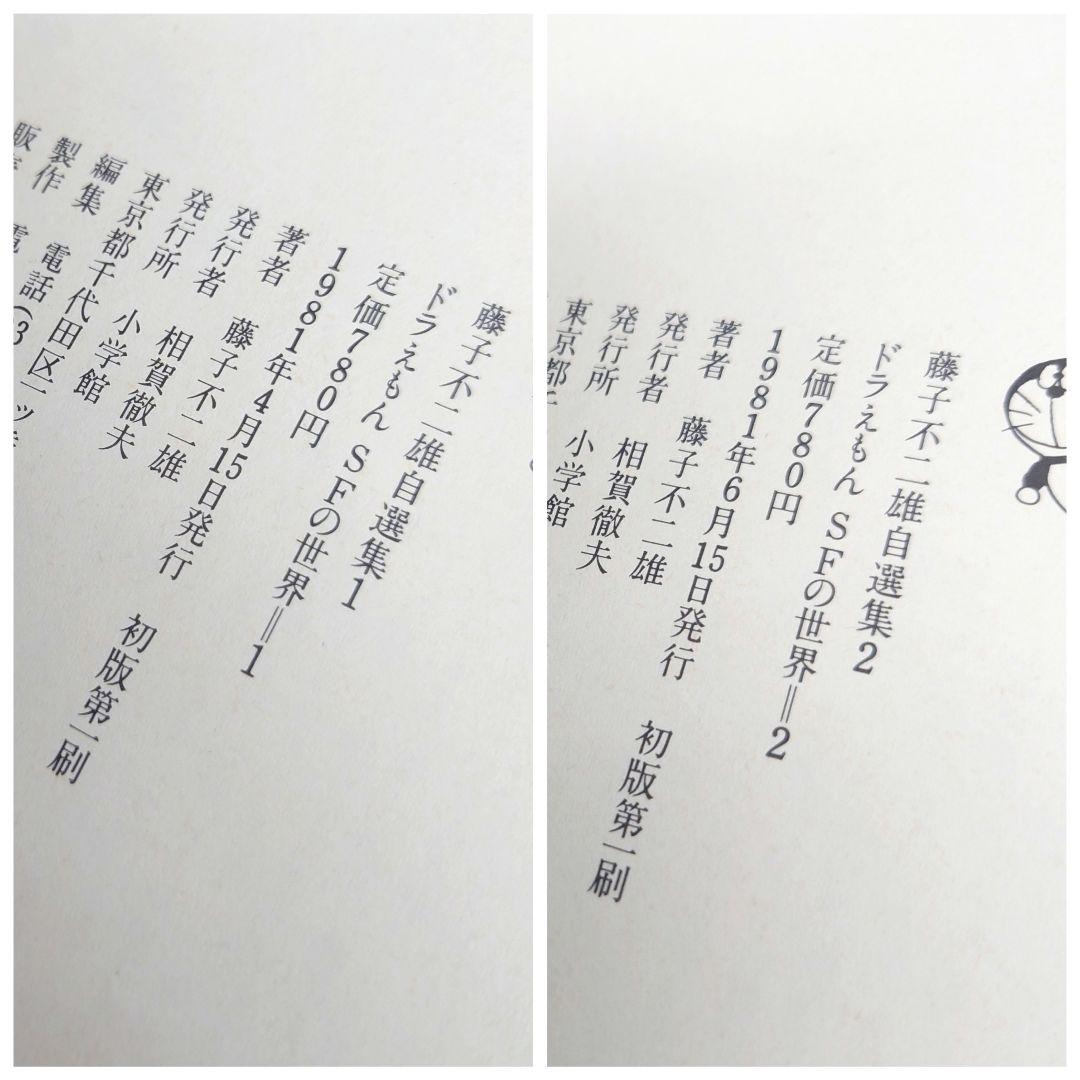 藤子不二雄自選集1
ドラえもん SFの世界=1
定価780円
1981年4月15日発行 初版第一刷
著者 藤子不二雄
発行者 相賀徹夫
発行所 小学館
東京都千代田区一ツ
編集 電話(3
製作
販売
藤子不二雄自選集2
ドラえもん SFの世界=2
定価780円
1981年6月15日発行 初版第一刷
著者 藤子不二雄
発行者 相賀徹夫
発行所 小学館
東京都千